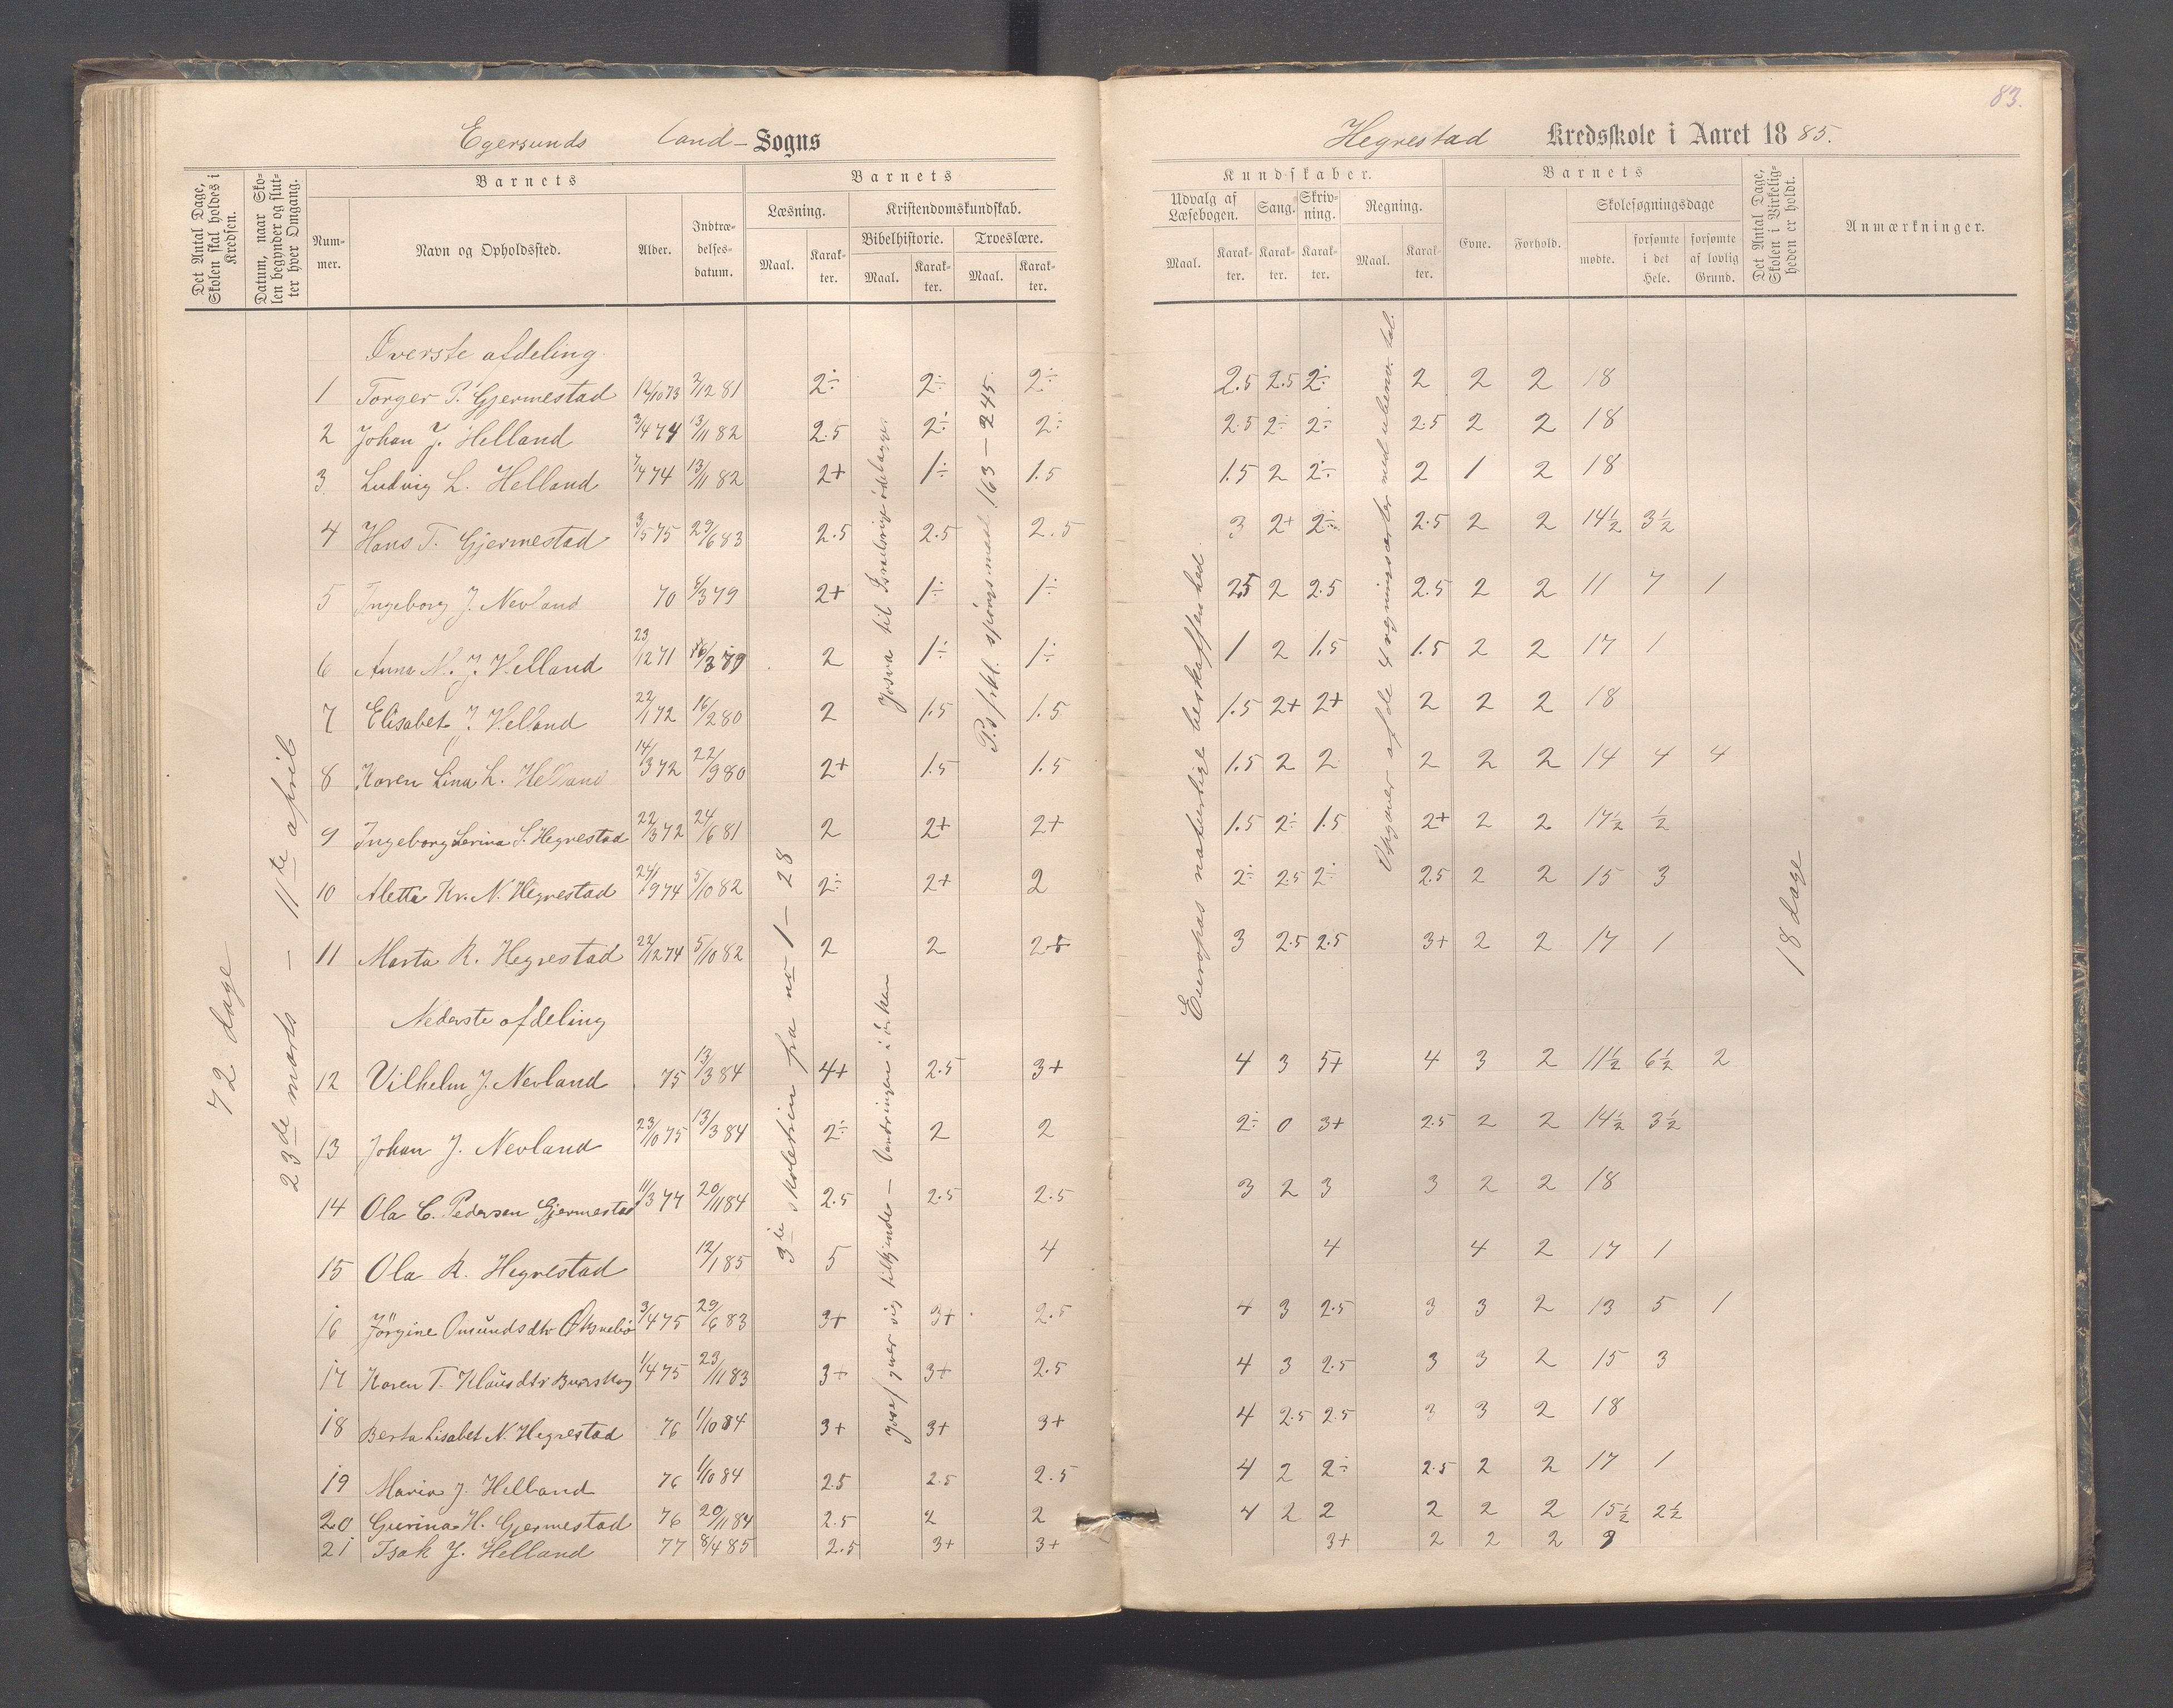 83.
Egersunds land- Sogns
Hegrestad Kredsskole i Aaret 1885.
Det Antal Dage, Skolen skal holdes i Kredsen.
Datum, naar Skolen begynder og slutter hver Omgang.
Barnets
Nummer.
Navn og Opholdssted.
Alder.
Indtrædelsesdatum.
Barnets
Læsning.
Maal.
Karakter.
Kristendomskundskab.
Bibelhistorie.
Maal.
Karakter.
Troeslære.
Maal.
Karakter.
Kundskaber.
Udvalg af Læsebogen.
Maal.
Karakter.
Sang.
Karakter.
Skrivning.
Karakter.
Regning.
Maal.
Karakter.
Barnets
Evne.
Forhold.
Skolesøgningsdage
mødte.
forsømte i det Hele.
forsømte af lovlig Grund.
Det Antal Dage, Skolen i Virkeligheden er holdt.
Anmærkninger.
72 dage
23de marts — 11te april
3ie skoletrin fra no 1 — 28
Josva til Israelsrige ödelagge.
Josef giver sig tilkjende — Vandringen i örken
163 — 245
Europas naturlige beskaffenhed
Opgaver af de 4 regningsarter med ubenæv. tal.
18 dage
Øverste afdeling.
1 Torger P. Gjermestad 12/10 73 2/12 81 2÷ 2÷ 2÷ 2.5 2.5 2÷ 2 2 2 18
2 Johan J. Helland 3/4 74 13/11 82 2.5 2÷ 2÷ 2.5 2÷ 2÷ 2.5 2 2 18
3 Ludvig L. Helland 7/4 74 13/11 82 2+ 1÷ 1.5 1.5 2 2÷ 2 1 2 18
4 Hans T. Gjermestad 3/5 75 29/6 83 2.5 2.5 2.5 3 2+ 2÷ 2.5 2 2 14½ 3½
5 Ingeborg J. Nevland 70 6/3 79 2+ 1÷ 1÷ 2.5 2 2.5 2.5 2 2 11 7 1
6 Anna N. J. Helland 23/12 71 2 1÷ 1÷ 1 2 1.5 1.5 2 2 17 1
7 Elisabet J. Helland 22/1 72 16/2 80 2 1.5 1.5 1.5 2+ 2+ 2 2 2 18
8 Karen Lina L. Helland 14/3 72 22/9 80 2+ 1.5 1.5 1.5 2 2 2 2 2 14 4 4
9 Ingeborg Serina S. Hegrestad 22/3 72 24/6 81 2 2+ 2+ 1.5 2÷ 1.5 2+ 2 2 17½ ½
10 Aletta Kr. N. Hegrestad 24/9 74 5/10 82 2÷ 2+ 2 2÷ 2.5 2÷ 2.5 2 2 15 3
11 Marta R. Hegrestad 22/12 74 5/10 82 2 2 2+ 3 2.5 2.5 3+ 2 2 17 1
Nederste afdeling
12 Vilhelm J. Nevland 75 13/3 84 4+ 2.5 3+ 4 3 5+ 4 3 2 11½ 6½ 2
13 Johan J. Nevland 23/10 75 13/3 84 2÷ 2 2 2÷ 0 3+ 2.5 2 2 14½ 3½
14 Ola C. Pedersen Gjermestad 11/3 77 20/11 84 2.5 2.5 2.5 3 2 3 3 2 2 18
15 Ola R. Hegrestad 12/1 85 5 4 4 4 2 17 1
16 Jörgine Omundsdtr 3/4 75 29/6 83 3+ 3+ 2.5 4 3 2.5 3 3 2 13 5 1
17 Karen T. Klausdtr 1/4 75 23/11 83 3+ 3+ 2.5 4 3 2.5 3 3 2 15 3
18 Berta Lisabet N. Hegrestad 76 1/10 84 3+ 3+ 3+ 4 2.5 2.5 3 3 2 18
19 Maria J. Helland 76 1/10 84 2.5 2.5 2.5 4 2 2÷ 2.5 2 2 17 1
20 Gurina H. Gjermestad 76 20/11 84 2.5 2 2 4 2 2 2 2 2 15½ 2½
21 Isak J. Helland 77 8/4 85 2.5 3+ 3+ 3+ 2 2 2